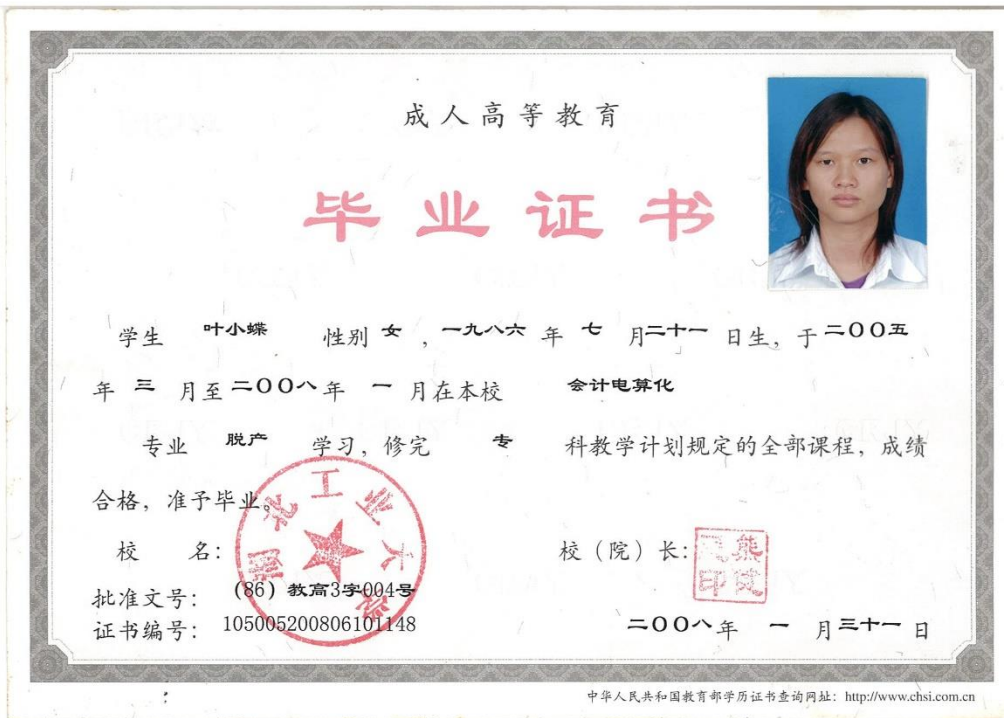 成人高等教育
毕业证书
学生 叶小蝶 性别 女 , 一九八六 年 七 月 二十一 日生, 于 二〇〇五
年 三 月至 二〇〇八 年 一 月在本校 会计电算化
专业 脱产 学习, 修完 专 科教学计划规定的全部课程, 成绩
合格, 准予毕业。
湖北工业大学
校 名: 校(院)长:
批准文号: (86) 教高3字004号
证书编号: 105005200806101148 二〇〇八 年 一 月 三十一 日
中华人民共和国教育部学历证书查询网址: http://www.chsi.com.cn